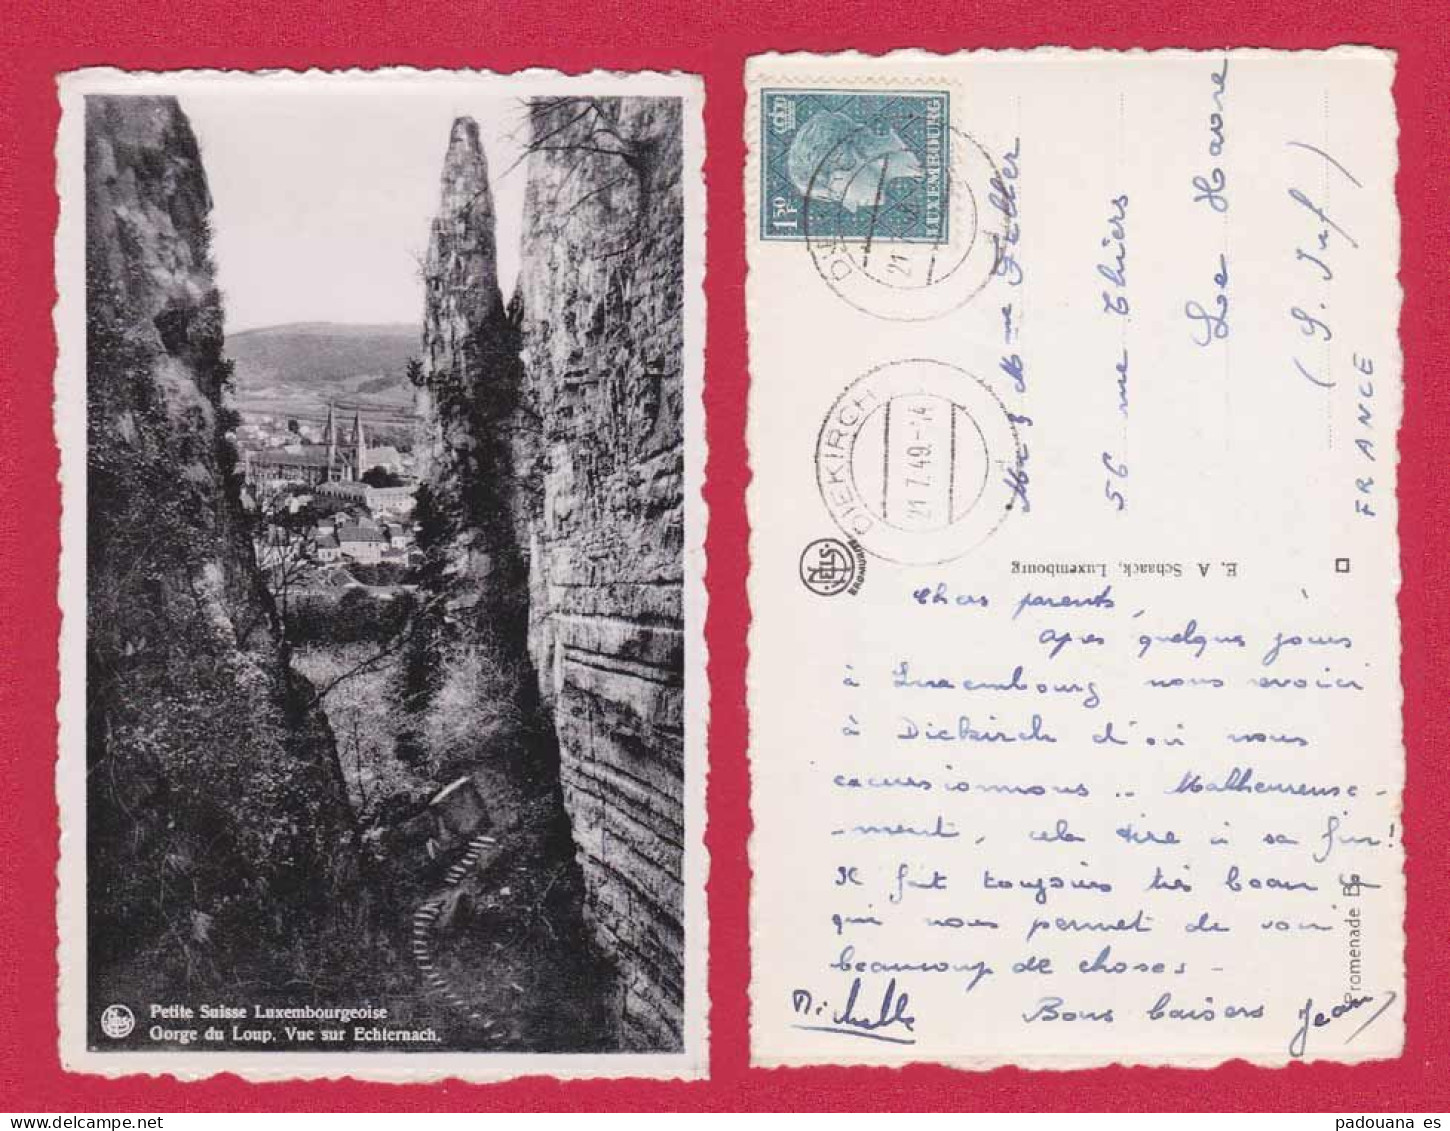 Petite Suisse Luxembourgeoise
Gorge du Loup. Vue sur Echternach.
1F50
LUXEMBOURG
DIEKIRCH
21.7.49.-14
NELS
BROMURITE
E. A. Schaack, Luxembourg
Promenade
Mr & Mme Feller
56 rue Thiers
Le Havre
(S. Inf)
FRANCE
Chers parents,
Après quelques jours
à Luxembourg nous revoici
à Diekirch d'où nous
excursionnons .. Malheureuse-
-ment, cela tire à sa fin!
Il fait toujours très beau
qui nous permet de voir
beaucoup de choses -
Bons baisers Jean
Michelle
padouana es